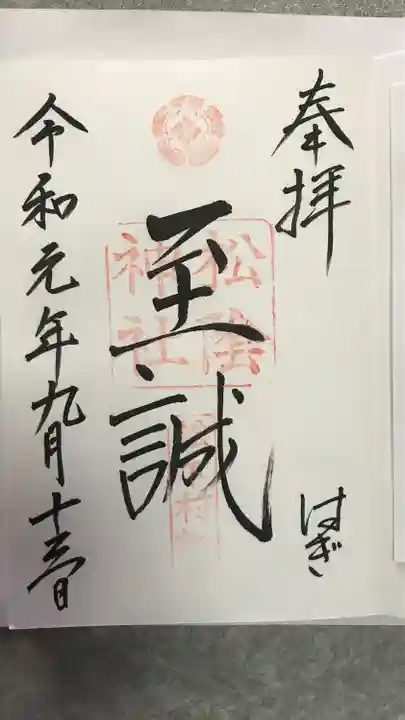 奉拝
はぎ
松陰
神社
至誠
令和元年九月十三日